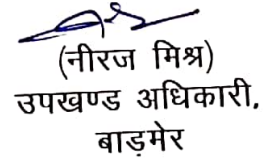 (नीरज मिश्र)
उपखण्ड अधिकारी,
बाड़मेर